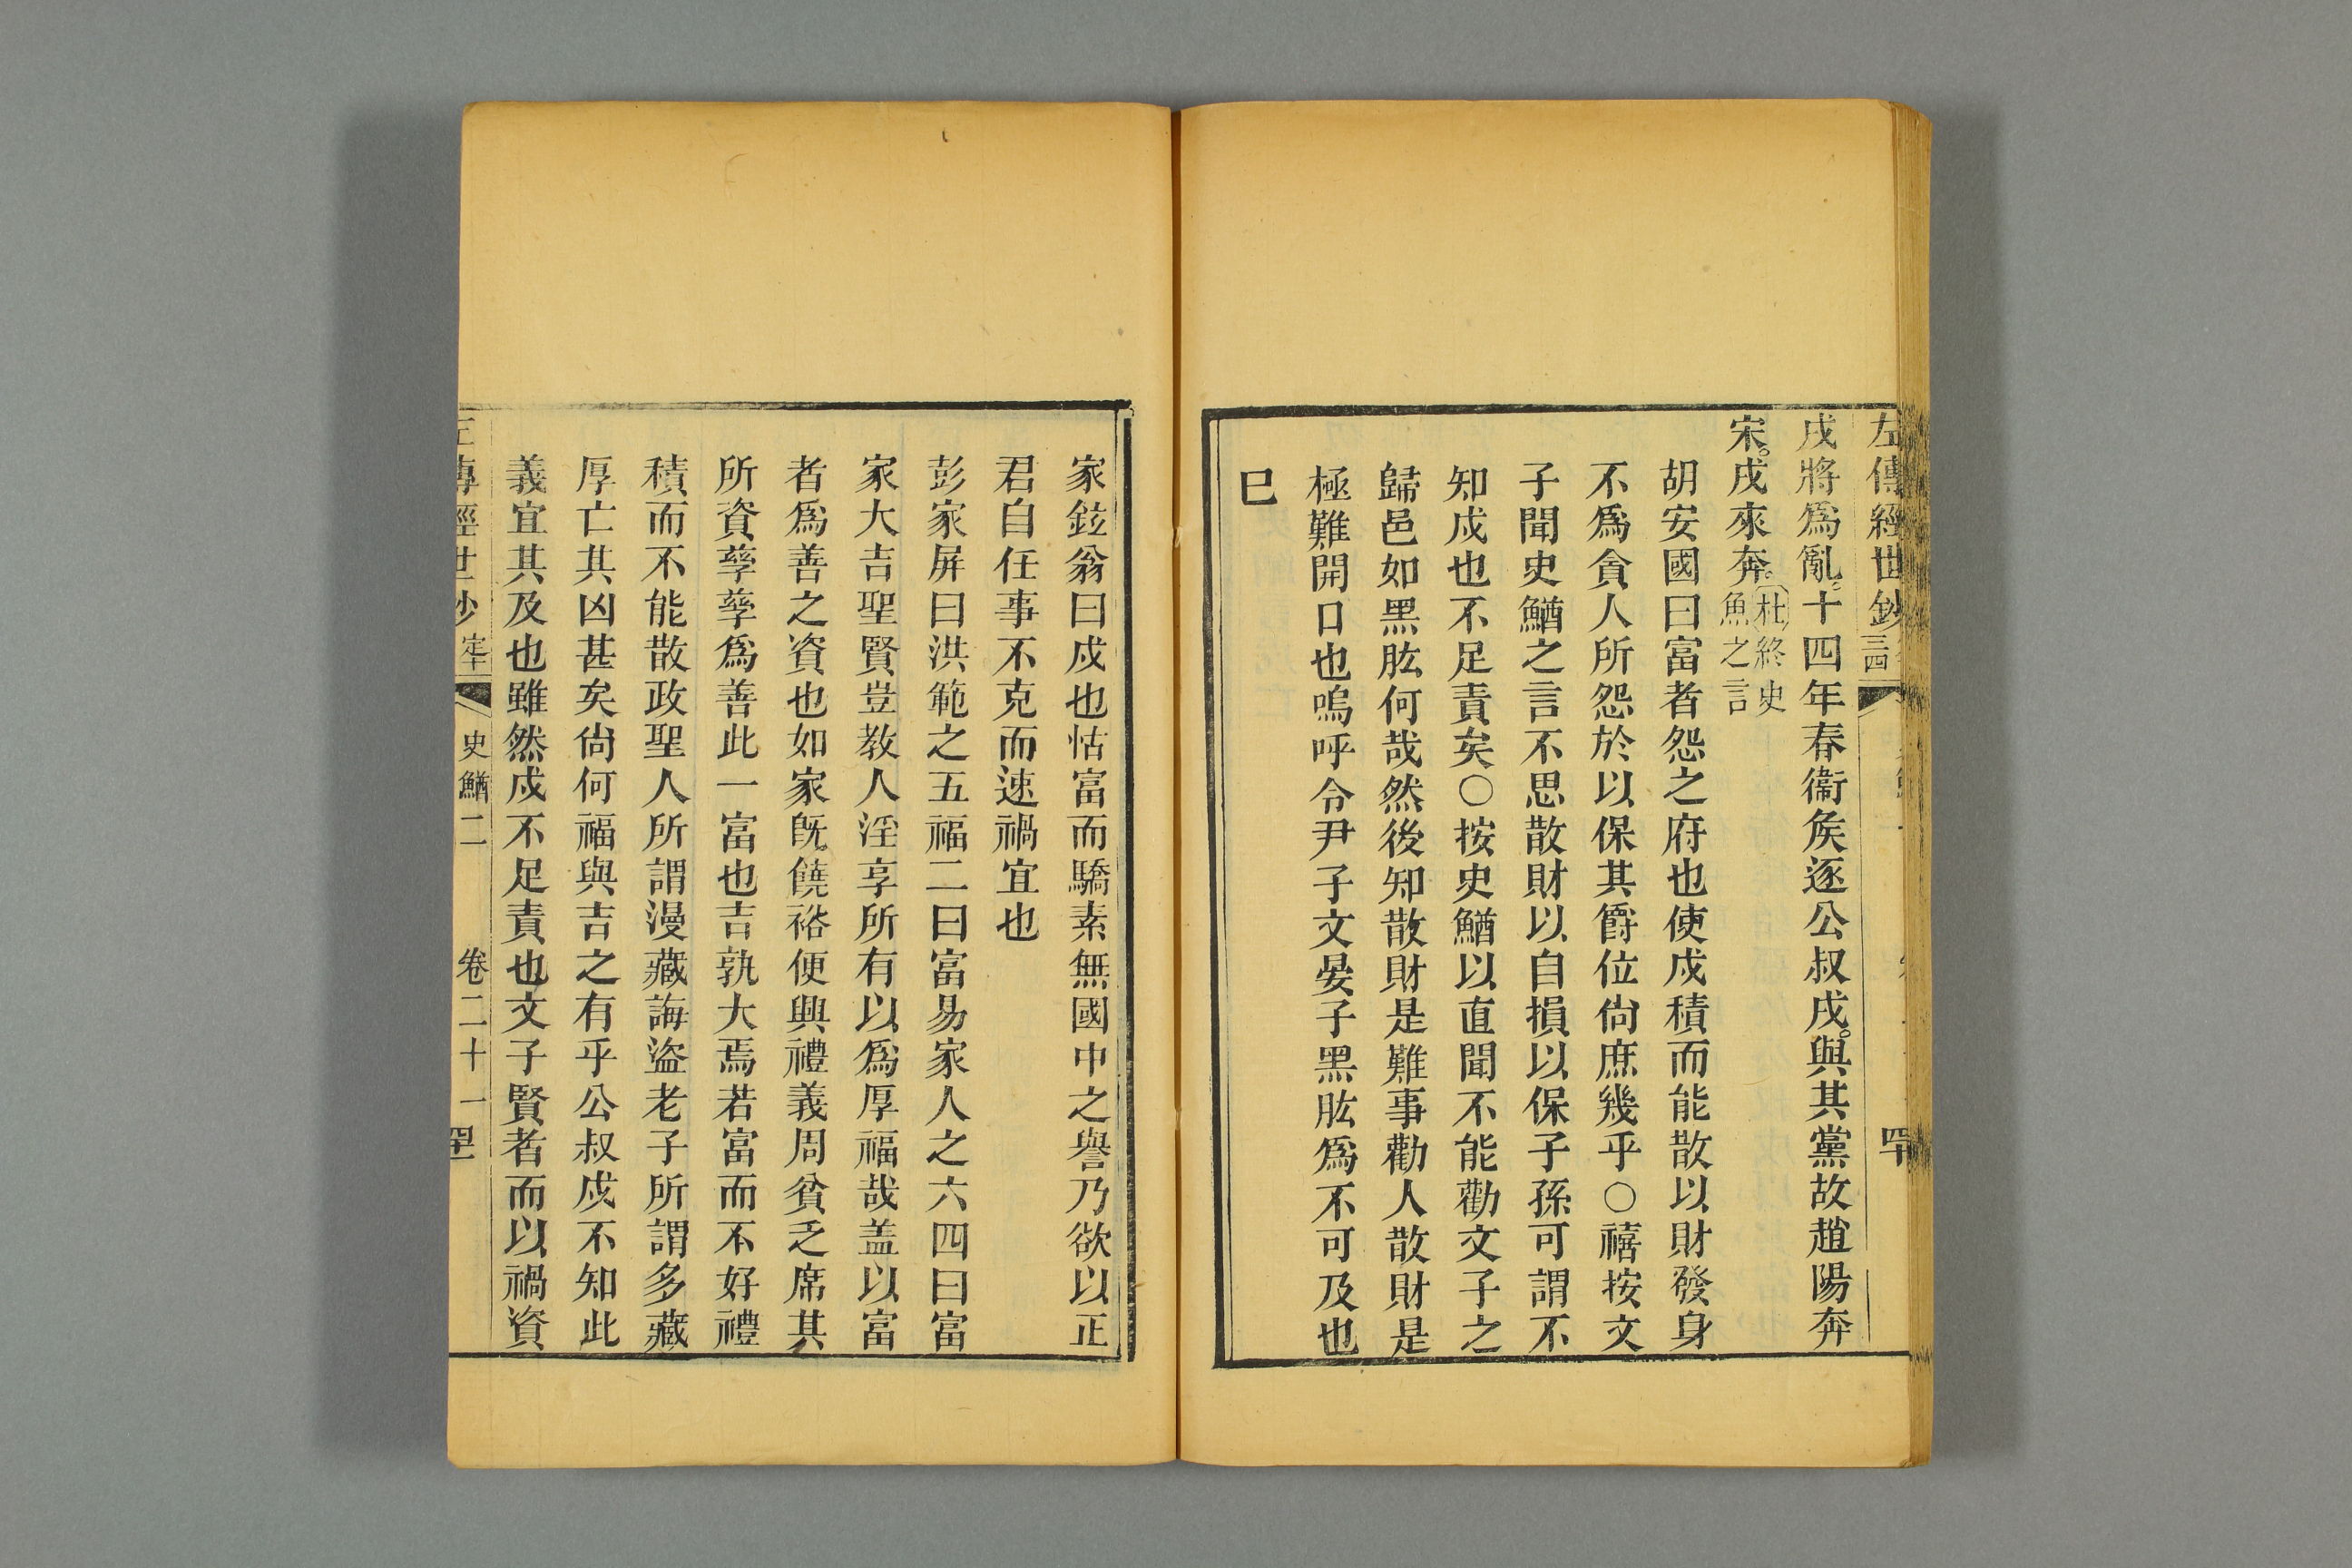 左傳經世鈔
戌將爲亂十四年春衞矦逐公叔戌與其黨故趙陽奔
宋戌來奔杜終史魚之言
胡安國曰富者怨之府也使戌積而能散以財發身
不爲貪人所怨於以保其爵位尙庶幾乎○禧按文
子聞史鰌之言不思散財以自損以保子孫可謂不
知戌也不足責矣○按史鰌以直聞不能勸文子之
歸邑如黑肱何哉然後知散財是難事勸人散財是
極難開口也嗚呼令尹子文晏子黑肱爲不可及也
巳
家鉉翁曰戌也怙富而驕素無國中之譽乃欲以正
君自任事不克而速禍宜也
彭家屏曰洪範之五福二曰富易家人之六四曰富
家大吉聖賢豈教人淫享所有以爲厚福哉盖以富
者爲善之資也如家旣饒裕便興禮義周貧乏席其
所資孳孳爲善此一富也吉孰大焉若富而不好禮
積而不能散政聖人所謂漫藏誨盜老子所謂多藏
厚亡其凶甚矣尙何福與吉之有乎公叔戌不知此
義宜其及也雖然戌不足責也文子賢者而以禍資
史鰌二 卷二十一